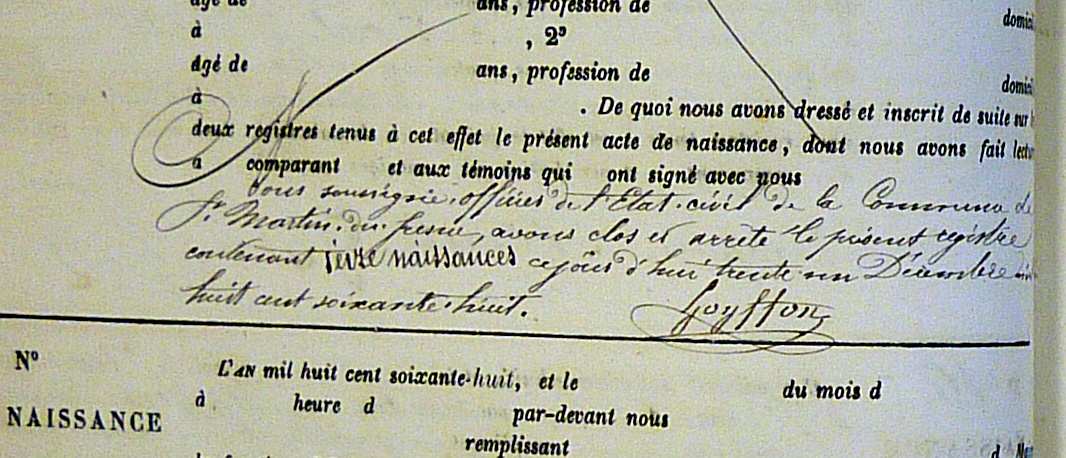 âgé de ans, profession de
domici
à , 2°
âgé de ans, profession de
domici
à . De quoi nous avons dressé et inscrit de suite sur
deux registres tenus à cet effet le présent acte de naissance, dont nous avons fait lectu
à comparant et aux témoins qui ont signé avec nous
Nous soussigné, officier de l'Etat-civil de la Commune de
St Martin-du-fresne, avons clos et arrêté le présent registre
contenant seize naissances ce jour d'hui trente un Décembre mil
huit cent soixante-huit. Goyffon
N° L'AN mil huit cent soixante-huit, et le du mois d
à heure d par-devant nous
NAISSANCE
remplissant